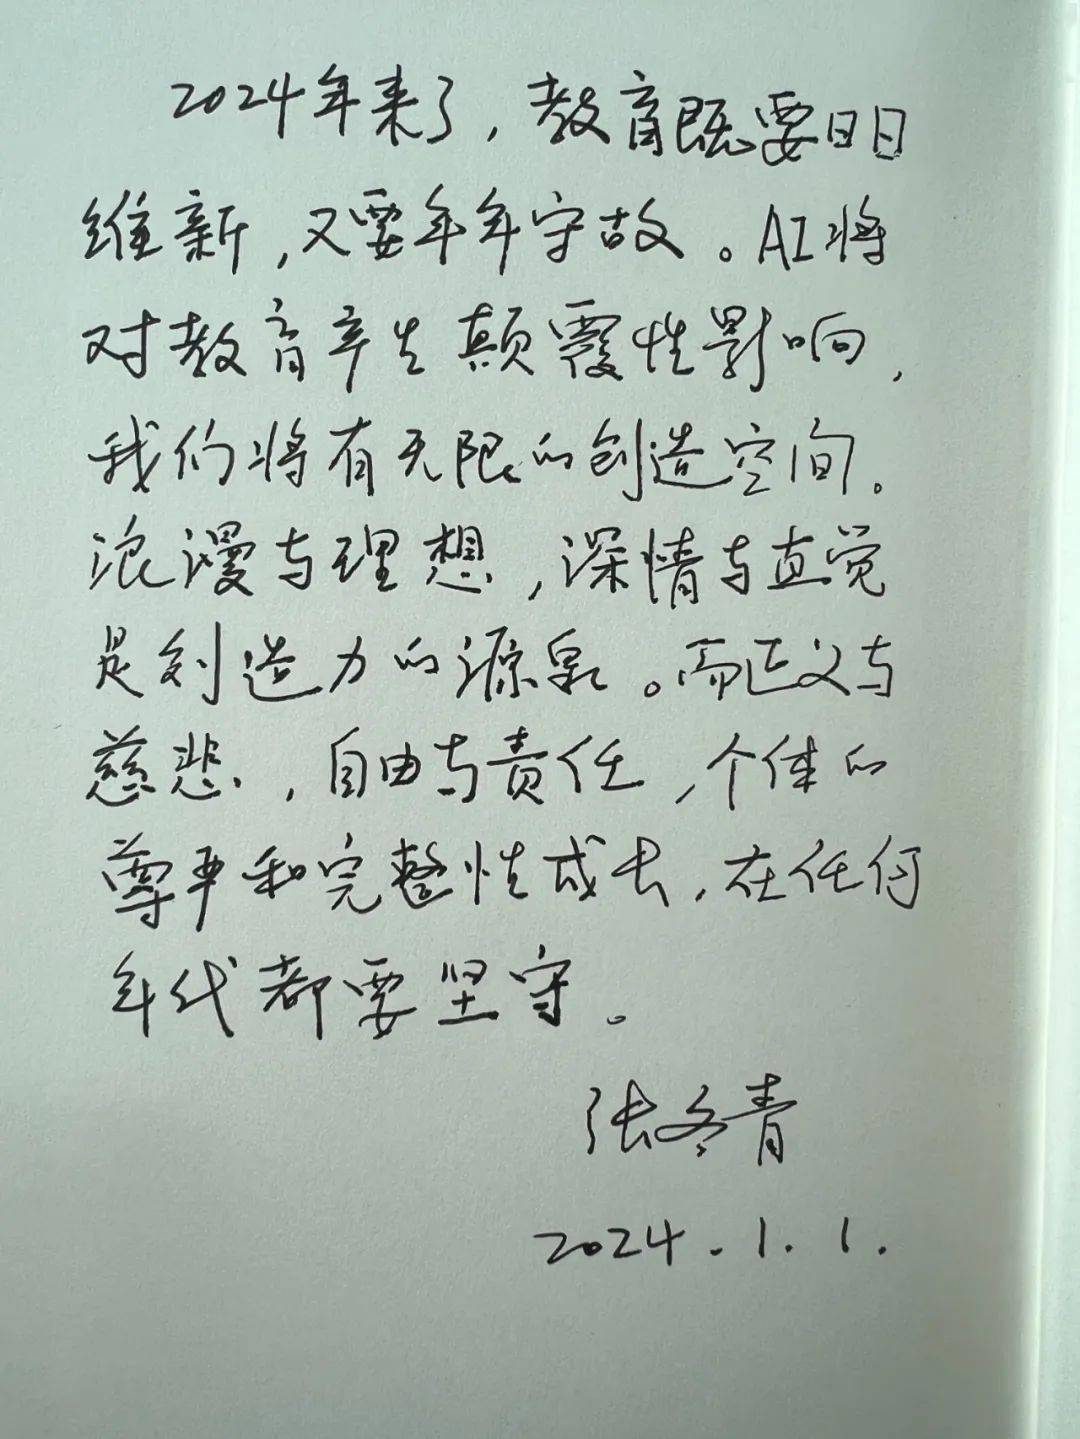 2024年来了，教育既要日日
维新，又要年年守故。AI将
对教育产生颠覆性影响，
我们将有无限的创造空间。
浪漫与理想，深情与直觉
是创造力的源泉。而正义与
慈悲，自由与责任，个体的
尊严和完整性成长，在任何
年代都要坚守。
张冬青
2024.1.1.